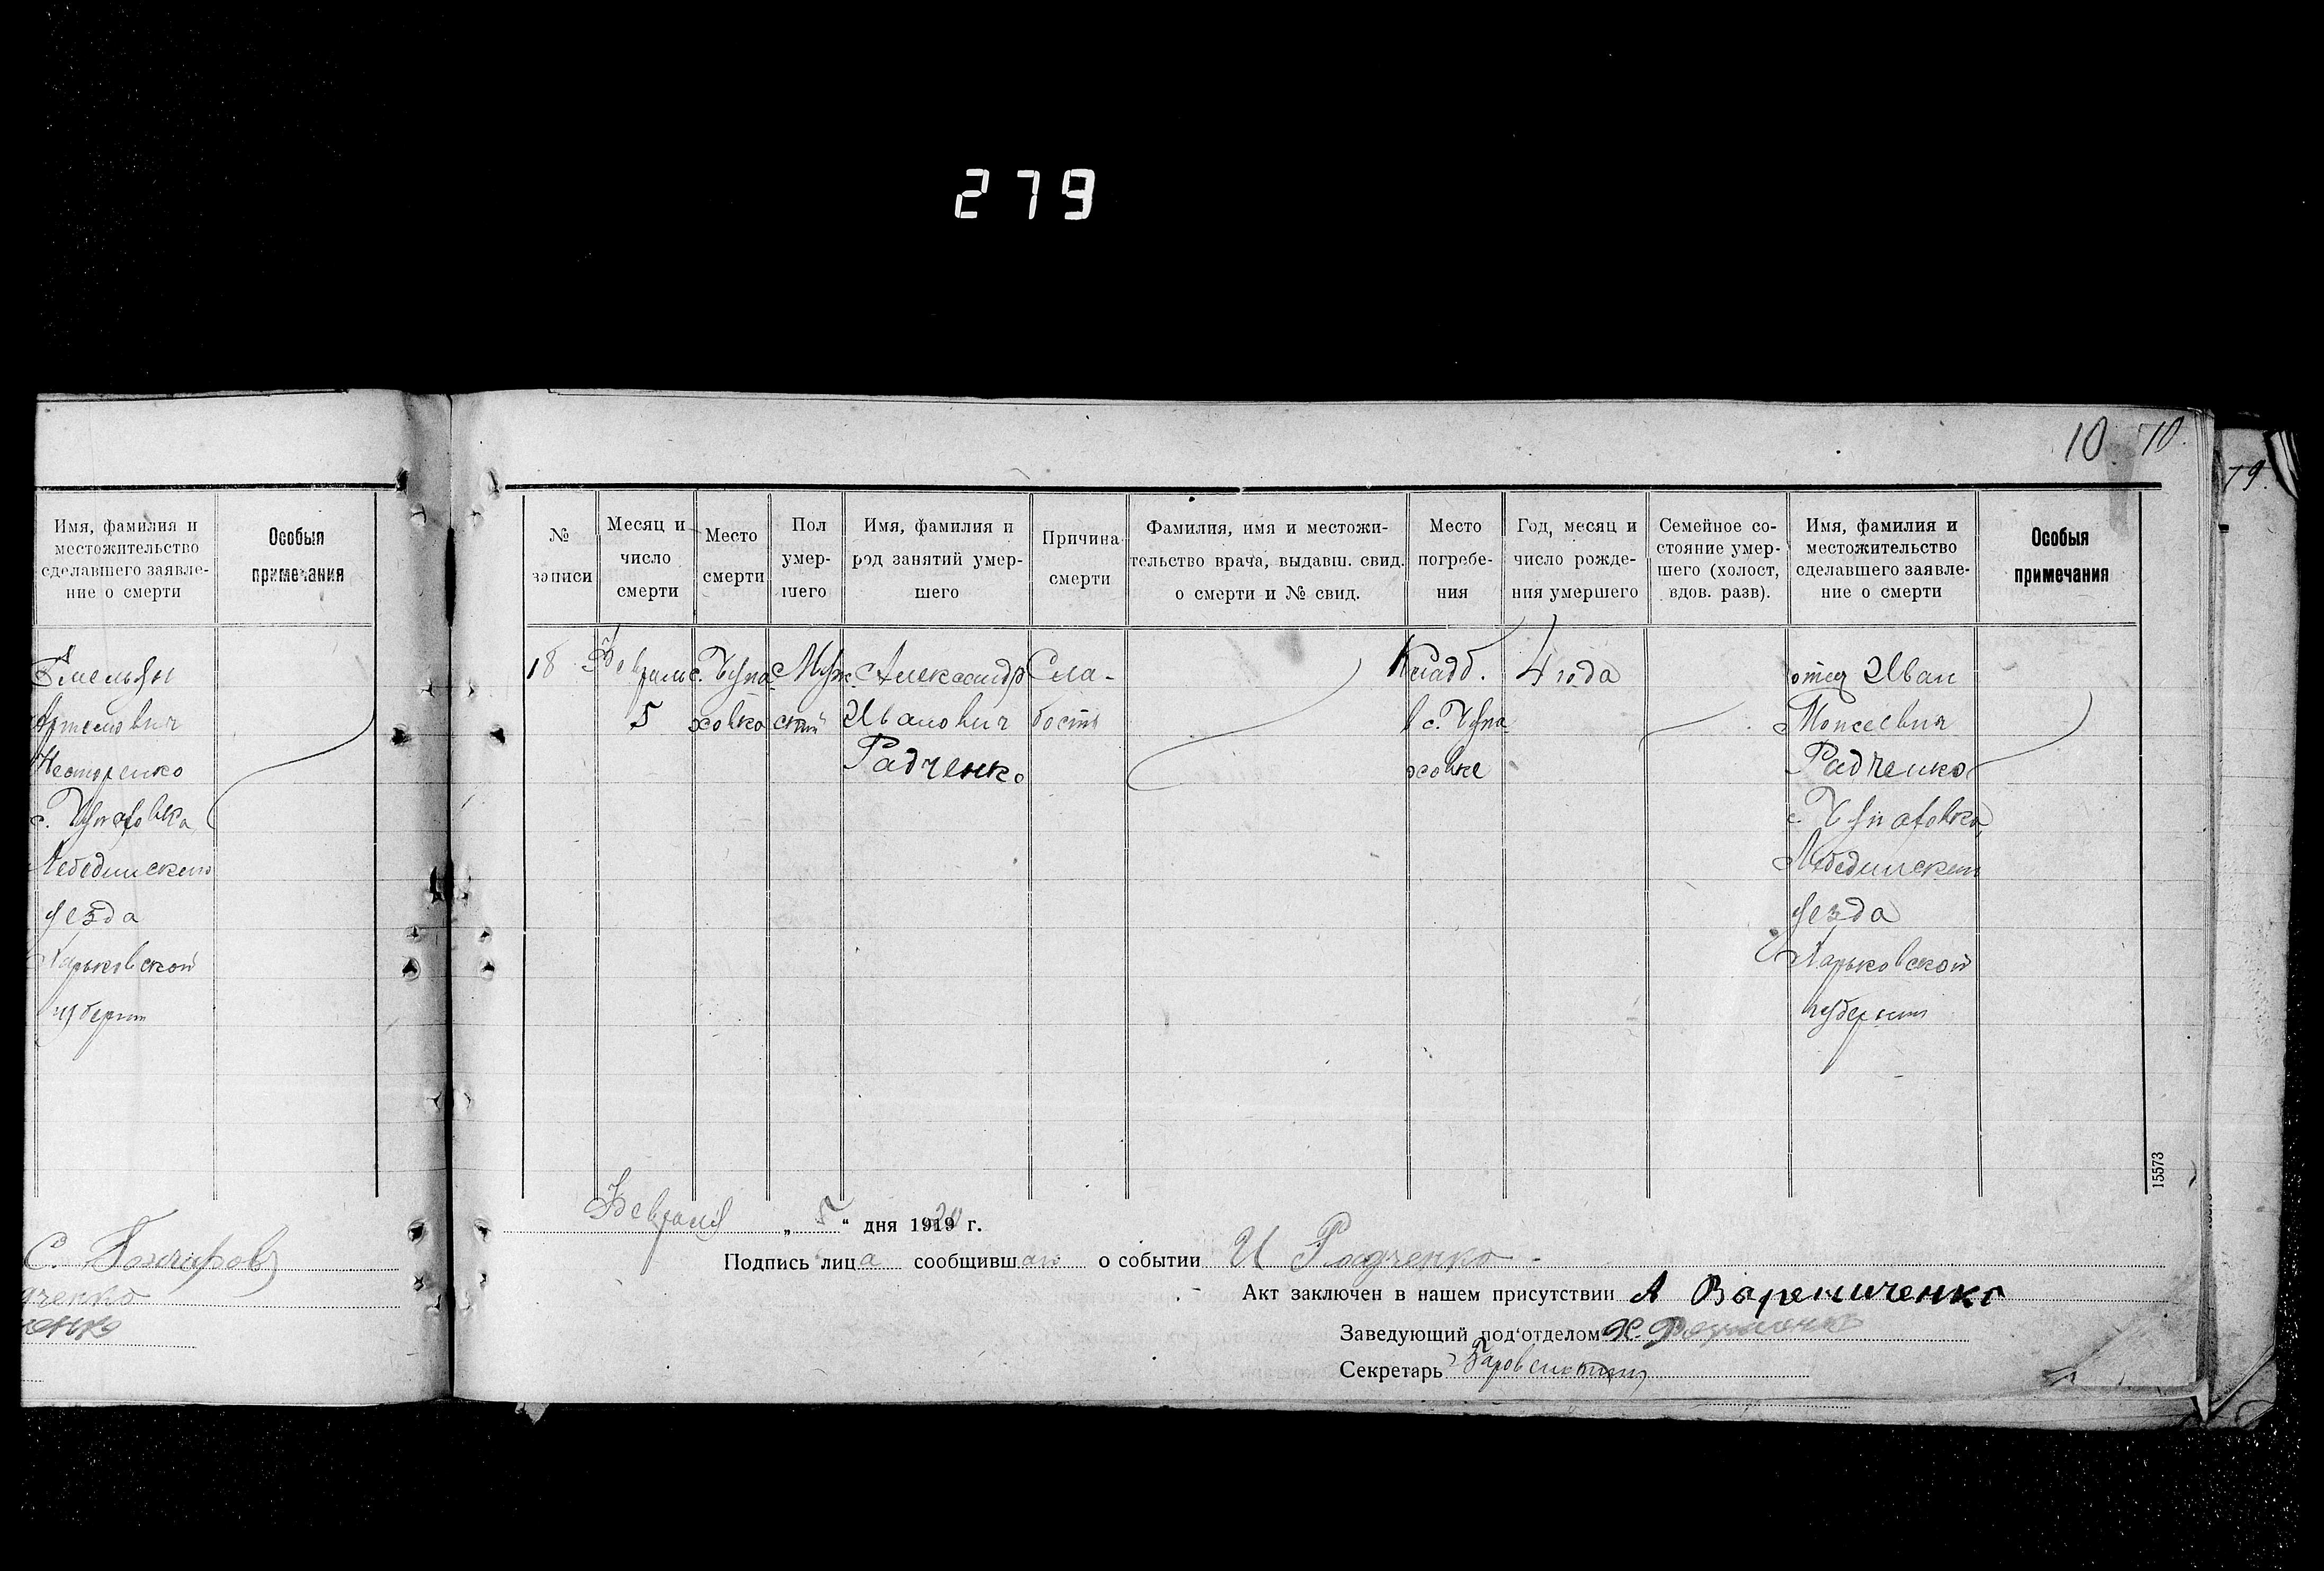 279
10 70.
79.
Имя, фамилия и
местожительство
сделавшего заявле-
ние о смерти
Особыя
примечания
Емельян
Артемович
Несторенко
с. Чупаховка
Лебединского
уезда
Харьковской
губернии
С. Гончаров
дченко
ченко
№
записи
Месяц и
число
смерти
Место
смерти
Пол
умер-
шего
Имя, фамилия и
род занятий умер-
шего
Причина
смерти
Фамилия, имя и местожи-
тельство врача, выдавш. свид.
о смерти и № свид.
Место
погребе-
ния
Год, месяц и
число рожде-
ния умершего
Семейное со-
стояние умер-
шего (холост,
вдов. разв).
Имя, фамилия и
местожительство
сделавшего заявле-
ние о смерти
Особыя
примечания
18
Февраль
5
с. Чупа-
ховка
Муж-
ский
Александр
Иванович
Радченко
Сла-
бость
Кладб.
в с. Чупа-
ховке
4 года
отец Иван
Моисеевич
Радченко
с. Чупаховка
Лебединского
уезда
Харьковской
губернии
15573
Февраля „ 5 “ дня 1920 г.
Подпись лица сообщившаго о событии И Радченко
Акт заключен в нашем присутствии А Варениченко
Заведующий под'отделом
Секретарь